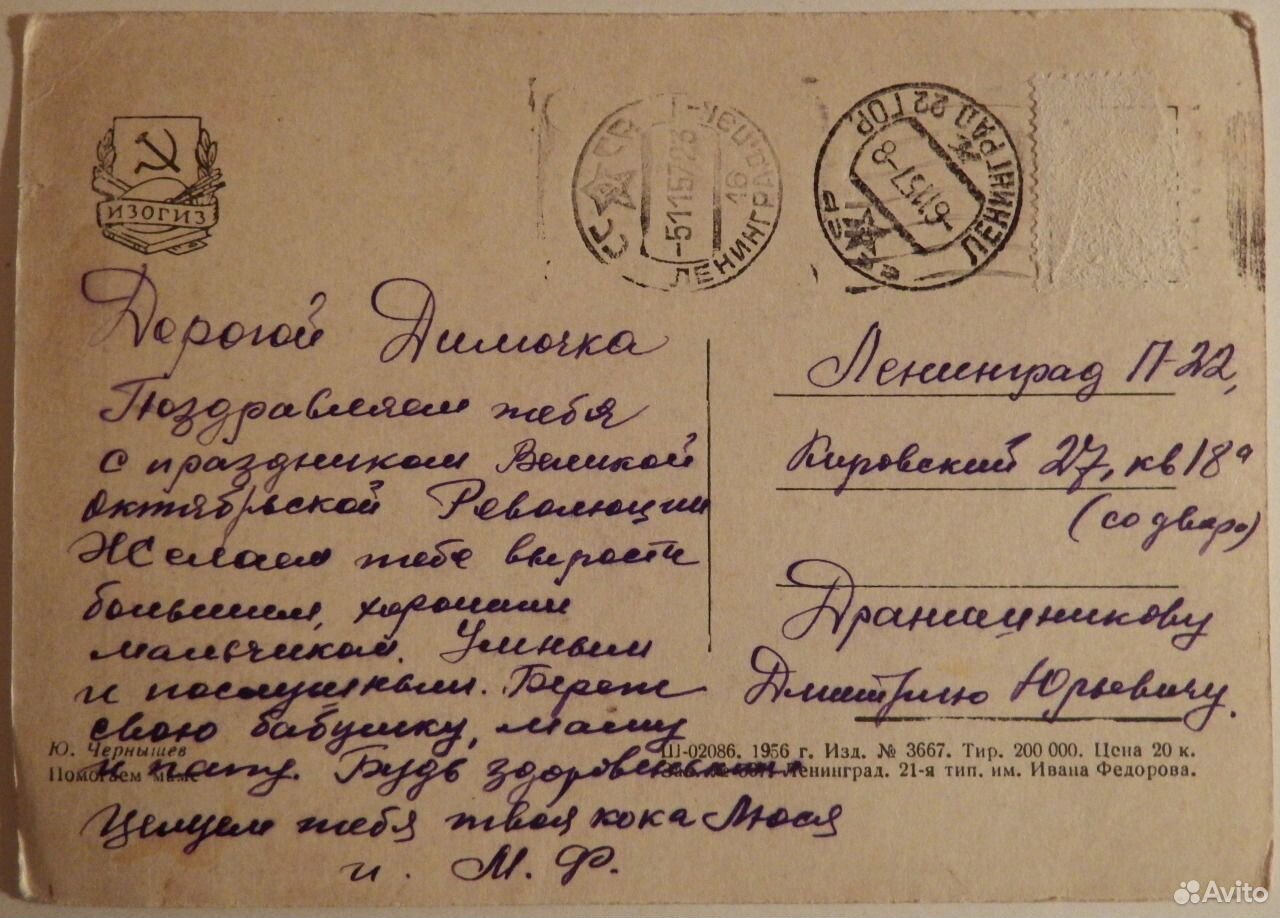 ИЗОГИЗ
СССР
-5 11 57 23
ЛЕНИНГРАД
16
ЛЕНИНГРАД 22 ГОР.
-6 11 57-8
Дорогой Димочка
Поздравляем тебя
с праздником Великой
октябрьской Революции
Желаем тебе вырости
большим, хорошим
мальчиком. Умным
и послушным. Береги
свою бабушку, маму
и папу. Будь здоров
Целуем тебя твоя кока Люся
и. М. Ф.
Ленинград П-22,
Кировский 27, кв 18а
(со двора)
Дранишникову
Дмитрию Юрьевичу.
Ю. Чернышев
Помогаем маме
Ш-02086. 1956 г. Изд. № 3667. Тир. 200 000. Цена 20 к.
Ленинград. 21-я тип. им. Ивана Федорова.
Avito